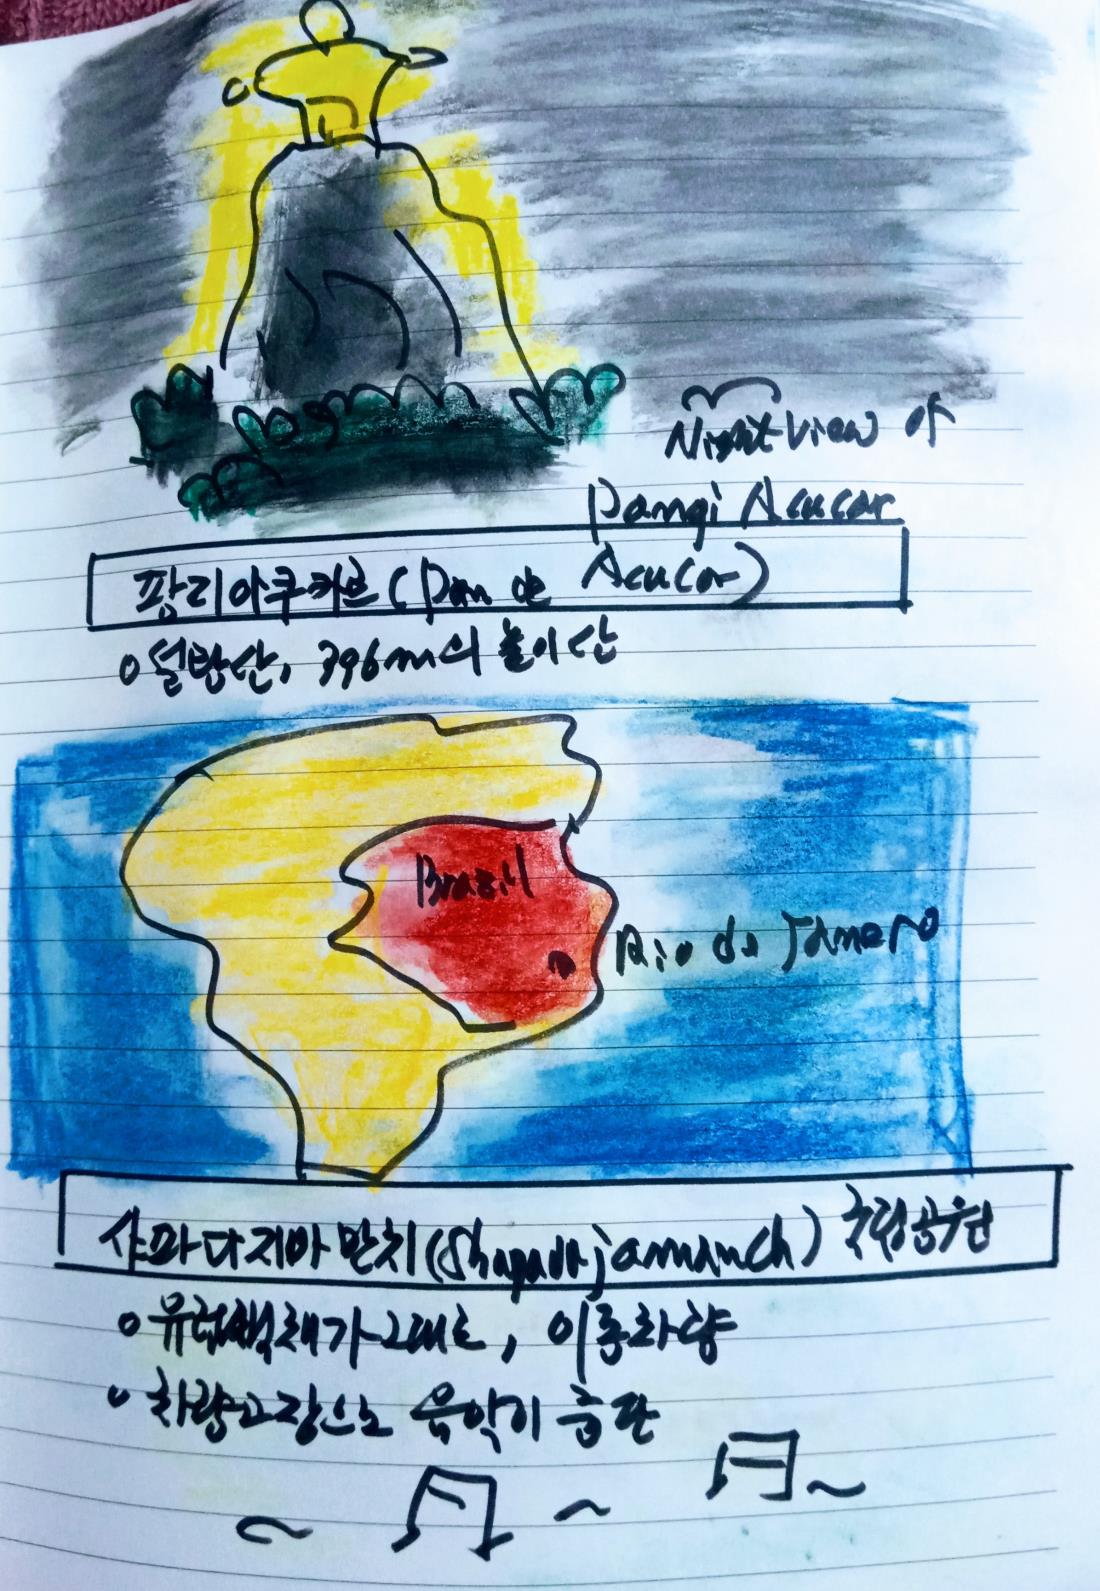 Night view of
Pangi Acucar
팡리아쿠카르 (Pan de Acucar)
설탕산, 396m의 높이 산
Brazil
Rio de Janero
샤파다지아만치 (Shapada jamanch) 국립공원
유럽 가그대로, 이동차량
차량고장으로 음악이 중단